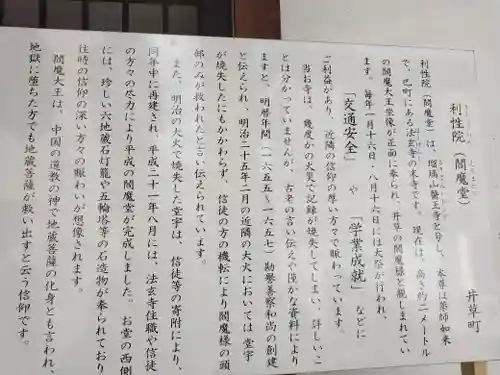 井草町
利性院（閻魔堂）
利性院（閻魔堂）は、瑠璃山醫王寺と号し、本尊は薬師如来
で、已町にある法玄寺の末寺です。現在は、高さ約二メートル
の閻魔大王坐像が正面に奉られ、井草の閻魔様と親しまれてい
ます。毎年一月十六日、八月十六日には大祭が行われ、
「交通安全」や「学業成就」などに
ご利益があり、近隣の信仰の厚い方々で賑わっています。
当お寺は、幾度かの火災で記録が焼失してしまい、詳しいこ
とは分かっていませんが、古老の言い伝えや僅かな資料により
ますと、明暦年間（一六五五～一六五七）勘譽善察和尚の創建
と伝えられ、明治二十五年二月の近隣の大火においては堂宇
が焼失したにもかかわらず、信徒の方の機転により閻魔様の頭
部のみが救われたと言い伝えられています。
また、明治の大火で焼失した堂宇は、信徒等の寄附により、
同年中に再建され、平成二十一年八月には、法玄寺住職や信徒
の方々の尽力により平成の閻魔堂が完成しました。お堂の西側
には、珍しい六地蔵石灯籠や五輪塔等の石造物が奉られており
往時の信仰の深い方々の賑わいが想像されます。
閻魔大王は、中国の道教の神で地蔵菩薩の化身とも言われ、
地獄に堕ちた方でも地蔵菩薩が救い出すと云う信仰です。